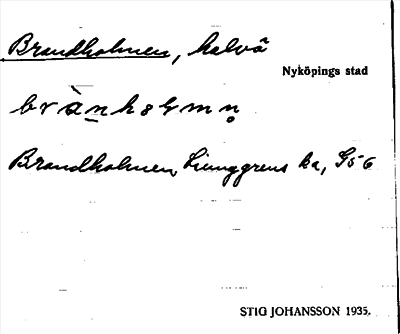 Brandholmen, halvö
Nyköpings stad
Brandholmen, Ljunggrens ka, G56
STIG JOHANSSON 1935.